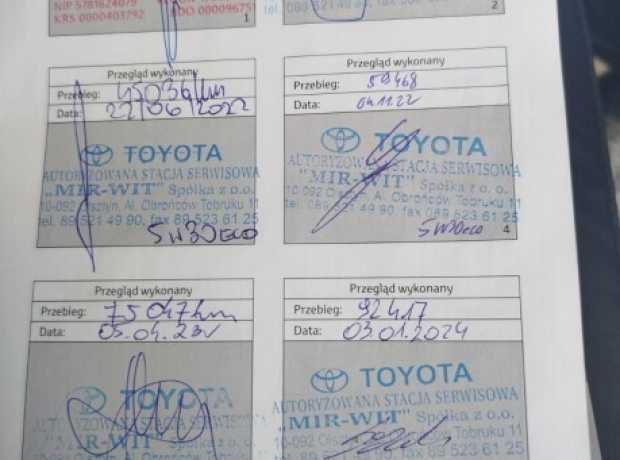 NIP 5781624079
KRS 0000403792
1
2
Przegląd wykonany
Przebieg: 45036 km
Data: 22/06/2022
TOYOTA
AUTORYZOWANA STACJA SERWISOWA
„MIR-WIT" Spółka z o.o.
10-092 Olsztyn, Al. Obrońców Tobruku
tel. 89 521 49 90, fax 89 523 61 25
5W30 ECO
Przegląd wykonany
Przebieg: 59468
Data: 04.11.22
TOYOTA
AUTORYZOWANA STACJA SERWISOWA
„MIR-WIT" Spółka z o.o.
10-092 Olsztyn, Al. Obrońców Tobruku 11
tel. 089 521 49 90, fax 089 523 61 25
5W30 eco
4
Przegląd wykonany
Przebieg: 75047 km
Data: 05.04.23
TOYOTA
AUTORYZOWANA STACJA
Przegląd wykonany
Przebieg: 92417
Data: 03.01.2024
TOYOTA
AUTORYZOWANA STACJA SERWISOWA
"MIR-WIT" Spółka z o.o.
10-092 Tobruku 11
89 523 61 25